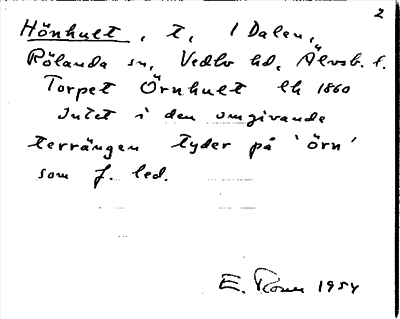 2
Hönhult, t, 1 Dalen,
Rölanda sn, Vedbo hd, Älvsb. l.
Torpet Örnhult lk 1860
Intet i den omgivande
terrängen tyder på 'örn'
som f. led.
E. 1954